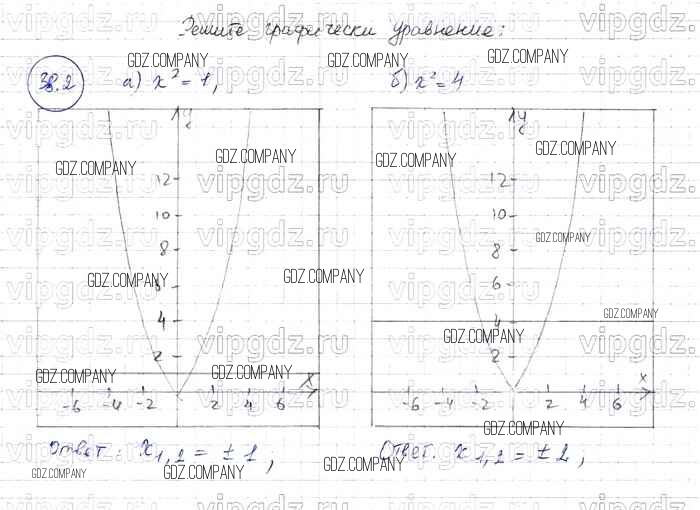 Решите графически уравнение:
38.2 а) x² = 1, б) x² = 4
y y
12 12
10 10
8 8
6 6
4 4
2 2
x x
-6 -4 -2 2 4 6 -6 -4 -2 2 4 6
Ответ: x₁,₂ = ± 1; Ответ: x₁,₂ = ± 2;
GDZ.COMPANY
vipgdz.ru